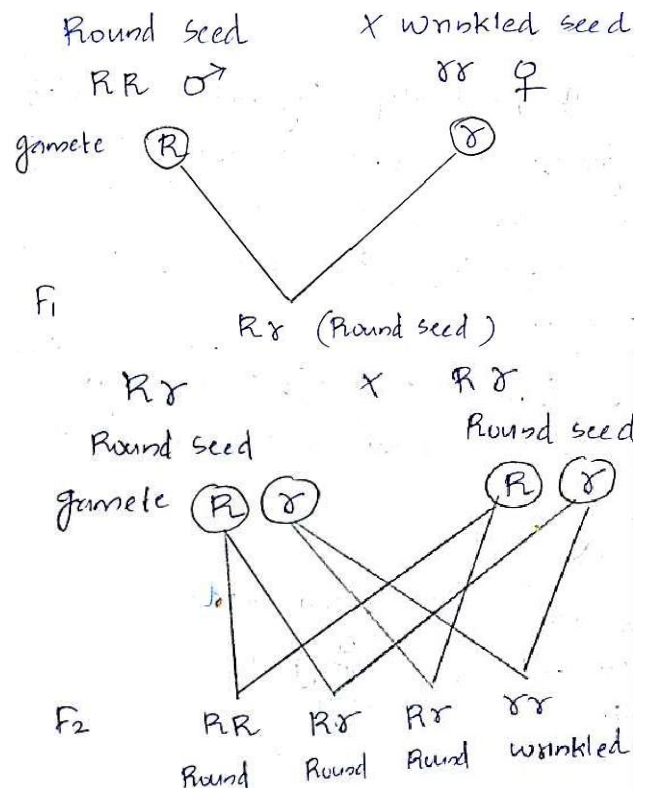 Round seed X wrinkled seed
RR ♂ rr ♀
gamete R r
F1
Rr (Round seed)
Rr X Rr
Round seed Round seed
gamete R r R r
F2 RR Rr Rr rr
Round Round Round wrinkled